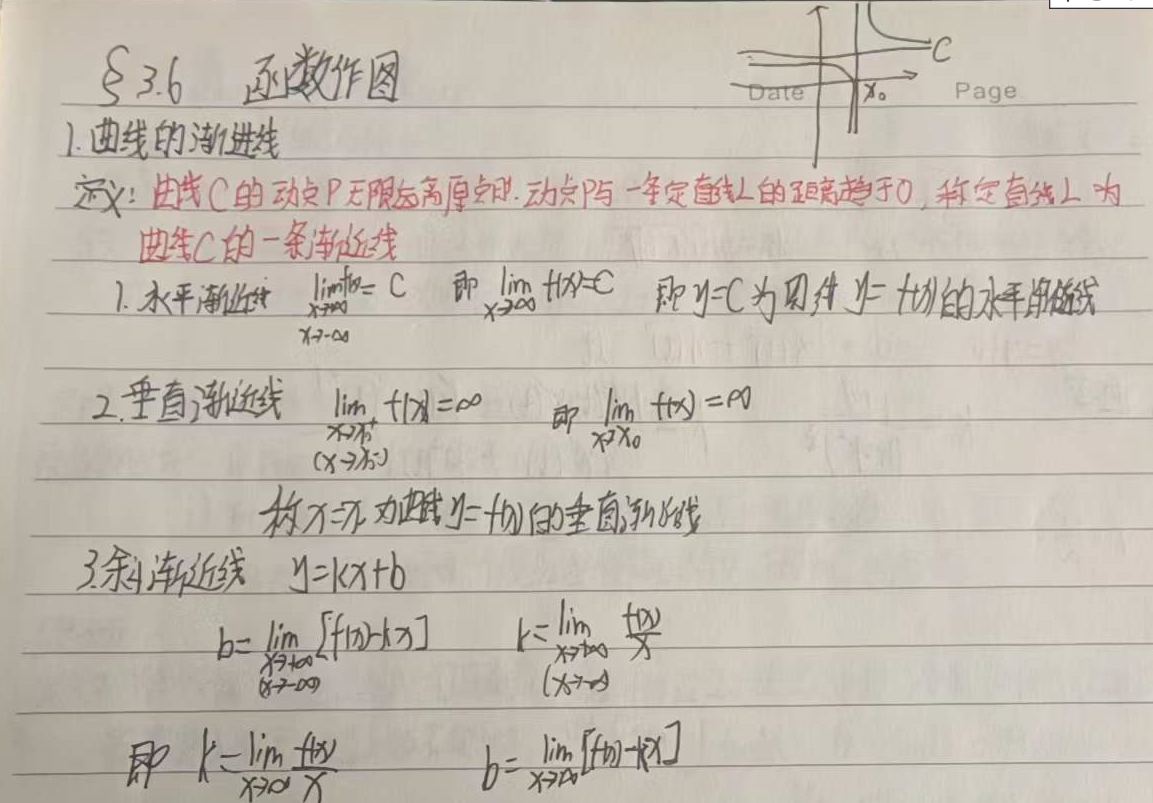 §3.6 函数作图
C
x₀
Date
Page
1.曲线的渐进线
定义:曲线C的动点P无限远离原点时.动点P与一条定直线L的距离趋于0,称定直线L为
曲线C的一条渐近线
1.水平渐近线 lim f(x)=C 即 lim f(x)=C 即y=C为 y=f(x)的水平渐近线
x→+∞ x→∞
x→-∞
2.垂直渐近线 lim f(x)=∞ 即 lim f(x)=∞
x→x₀⁺ x→x₀
(x→x₀⁻)
称x=x₀为曲线y=f(x)的垂直渐近线
3.斜渐近线 y=kx+b
b=lim[f(x)-kx] k=lim f(x)/x
x→+∞ x→+∞
(x→-∞) (x→-∞)
即 k=lim f(x)/x b=lim[f(x)-kx]
x→∞ x→∞